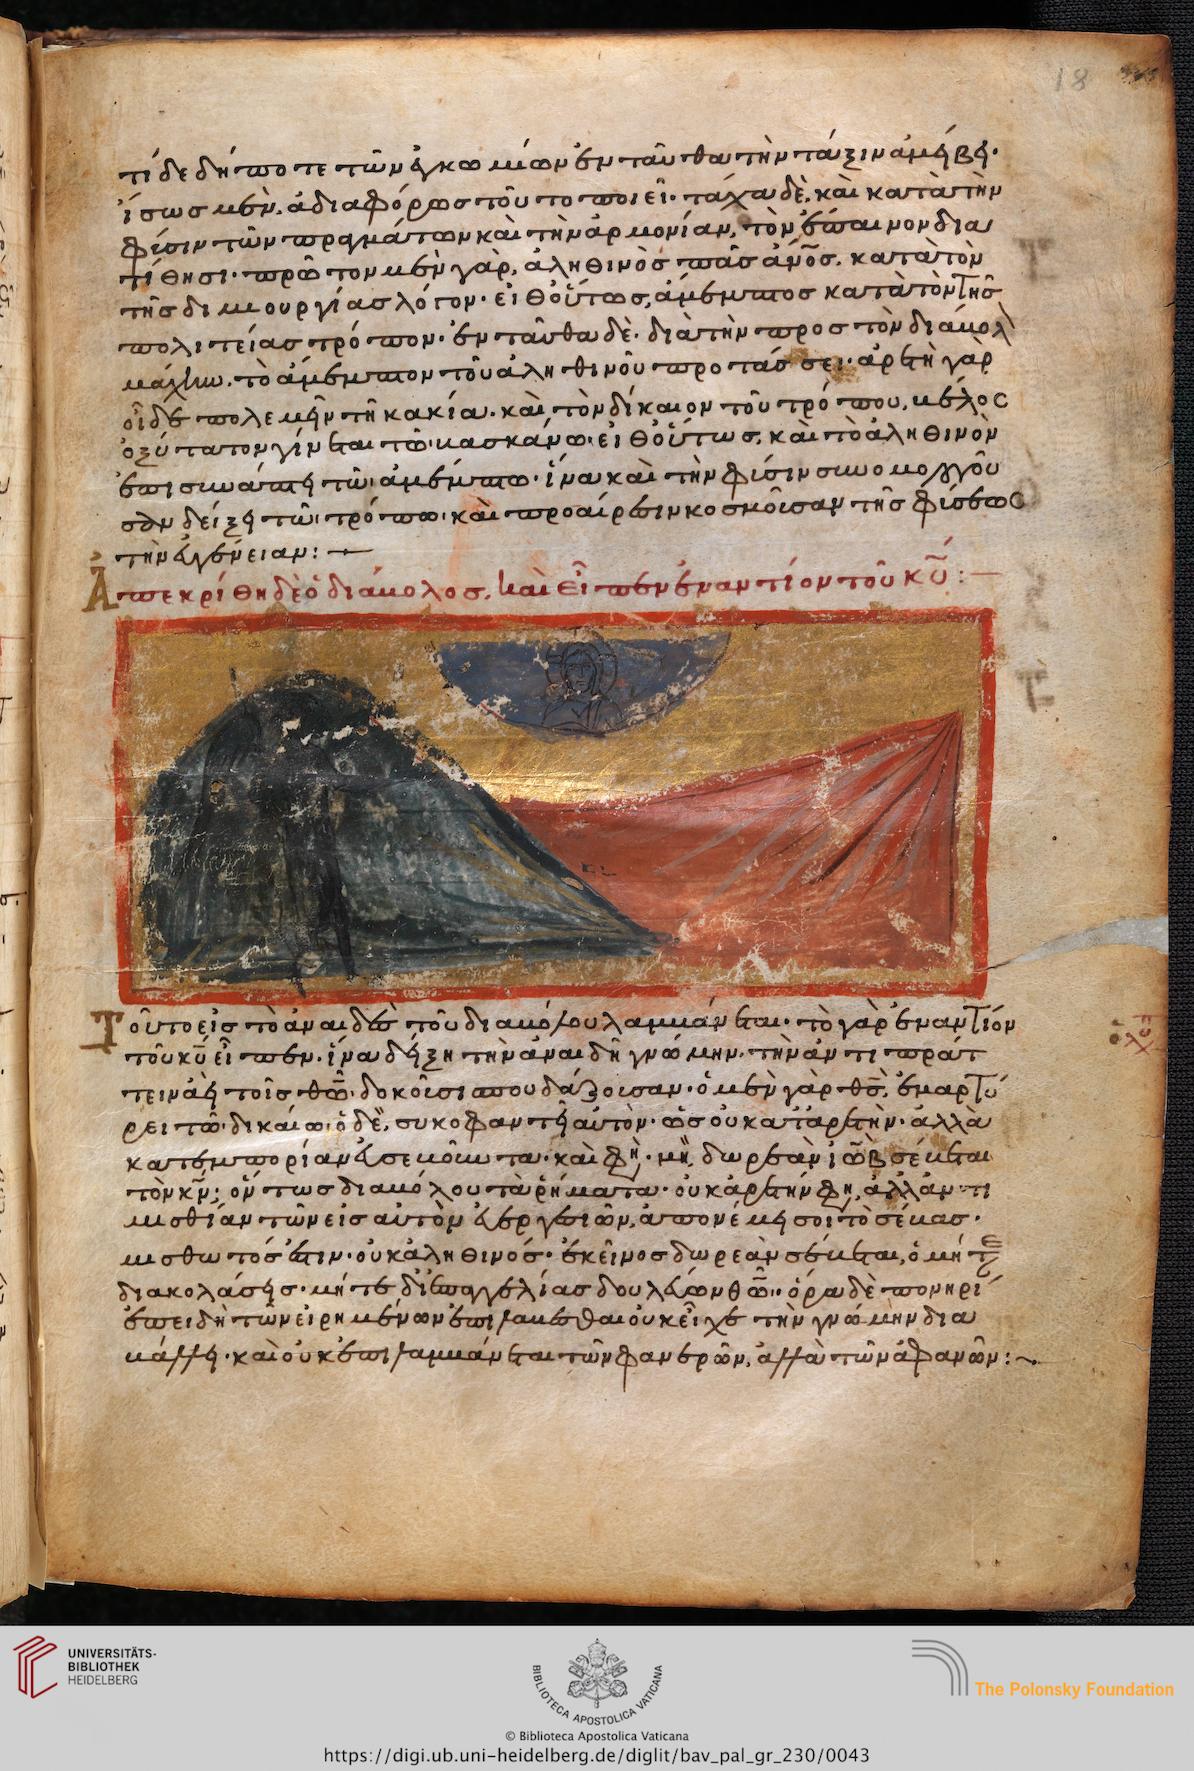 18
τί δε δή ποτε τῶν ἐγκωμίων ἐν ταῦθα τὴν τάξιν ἀμείβει·
ἴσως μὲν, ἀδιαφόρως τοῦτο ποιεῖ· τάχα δὲ, καὶ κατὰ τὴν
φύσιν τῶν πραγμάτων καὶ τὴν ἁρμονίαν, τὸν ἔπαινον δια
τίθησι· πρῶτον μὲν γὰρ, ἀληθινὸς πᾶς ἄνο̅ς, κατὰ τὸν
τῆς δημιουργίας λόγον· εἶθ' οὕτως, ἄμεμπτος κατὰ τὸν τῆς
πολιτείας τρόπον· ἐνταῦθα δὲ· διὰ τὴν προς τὸν διάβολ
μάχην· τὸ ἄμεμπτον τοῦ ἀληθινοῦ προτάσσει· ἀρετὴ γὰρ
οἶδε πολεμεῖν τῇ κακία· καὶ τὸν δίκαιον τοῦ τρόπου, βέλος
ὀξύτατον γίνεται τῶ βασκάνω· εἶθ' οὕτως, καὶ τὸ ἀληθινὸν
ἐπισυνάπτει τῶ ἀμέμπτω· ἵνα καὶ τὴν φύσιν συνομολογοῦ
σαν δείξη τῶ τρόπω· καὶ προαίρεσιν κοσμοῦσαν τῆς φύσεως
τὴν εὐγένειαν:
Ἀπεκρίθη δὲ ὁ διάβολος, καὶ εἶπεν ἐναντίον τοῦ κυ̅:
Τοῦτο εἰς τὸ ἀναιδὲς τοῦ διαβόλου λαμβάνεται· τὸ γὰρ ἐναντίον
τοῦ κυ̅ εἶπεν· ἵνα δείξη τὴν ἀναιδῆ γνώμην· τὴν ἀντιπράτ
τειν ἀεὶ τοῖς θω̅ δοκοῦσι σπουδάζουσαν· ὁ μὲν γὰρ θς̅, ἐμαρτύ
ρει τῶ δικαίω· ὁ δὲ, συκοφαντεῖ αὐτὸν· ὡς οὐ κατ' ἀρετὴν· ἀλλὰ
κατ' ἐμπορίαν εὐσεβοῦντα· καὶ φη· μὴ δωρεὰν ἰὼβ σέβεται
τὸν κν̅; ὄντως διαβόλου τὰ ῥήματα· οὐκ ἀρετήν φη, ἀλλ' ἀντι
μισθίαν τῶν εἰς αὐτὸν εὐεργεσιῶν, ἀπονέμει σοι τὸ σέβας·
μισθωτός ἐστιν· οὐκ ἀληθινός· ἐκεῖνος δωρεὰν σέβεται, ὁ μήτε
διὰ κολάσεις· μήτε δι' ἐπαγγελίας δουλεύων θω̅· ὅρα δὲ πονηρί
ἐπειδὴ τῶν εἰρημένων ἐπιλαβέσθαι οὐκ εἶχε τὴν γνώμην δια
βάλλει· καὶ οὐκ ἐπιλαμβάνεται τῶν φανερῶν, ἀλλὰ τῶν ἀφανῶν:
UNIVERSITÄTS-
BIBLIOTHEK
HEIDELBERG
BIBLIOTECA APOSTOLICA VATICANA
The Polonsky Foundation
© Biblioteca Apostolica Vaticana
https://digi.ub.uni-heidelberg.de/diglit/bav_pal_gr_230/0043